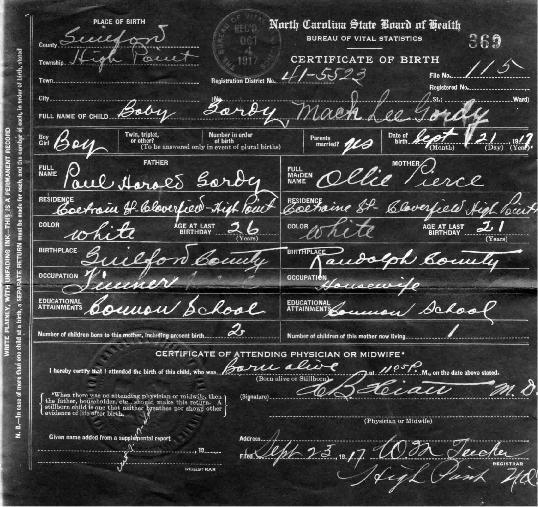 PLACE OF BIRTH
County Guilford
Township High Point
Town
City
REC'D.
OCT
4
1917
North Carolina State Board of Health
BUREAU OF VITAL STATISTICS
369
CERTIFICATE OF BIRTH
Registration District No. 41-5523
File No. 115
Registered No.
(No. St.; Ward)
FULL NAME OF CHILD Baby Gordy, Mack Lee Gordy
Boy Girl Boy
Twin, triplet, or other?
Number in order of birth
(To be answered only in event of plural births)
Parents married? yes
Date of birth Sept 21 1917
(Month) (Day) (Year)
FATHER
FULL NAME Paul Harold Gordy
RESIDENCE Coltrain St. Cloverfield - High Point
COLOR White
AGE AT LAST BIRTHDAY 26
(Years)
BIRTHPLACE Guilford County
OCCUPATION Tinner
EDUCATIONAL ATTAINMENTS Common School
Number of children born to this mother, including present birth 2
MOTHER
FULL MAIDEN NAME Ollie Pierce
RESIDENCE Coltraine St. Cloverfield High Point
COLOR White
AGE AT LAST BIRTHDAY 21
(Years)
BIRTHPLACE Randolph County
OCCUPATION Housewife
EDUCATIONAL ATTAINMENTS Common School
Number of children of this mother now living 1
CERTIFICATE OF ATTENDING PHYSICIAN OR MIDWIFE*
I hereby certify that I attended the birth of this child, who was Born alive at P.M., on the date above stated.
(Born alive or Stillborn)
*When there was no attending physician or midwife, then the father, householder, etc., should make this return. A stillborn child is one that neither breathes nor shows other evidence of life after birth.
(Signature) Hiatt M.D.
(Physician or Midwife)
Given name added from a supplemental report
, 19
REGISTRAR
Address
Filed Sept 23, 1917 W.M. Tucker
REGISTRAR
High Point N.C.
WRITE PLAINLY, WITH UNFADING INK—THIS IS A PERMANENT RECORD
N. B.—In case of more than one child at a birth, a SEPARATE RETURN must be made for each, and the number of each, in order of birth, stated